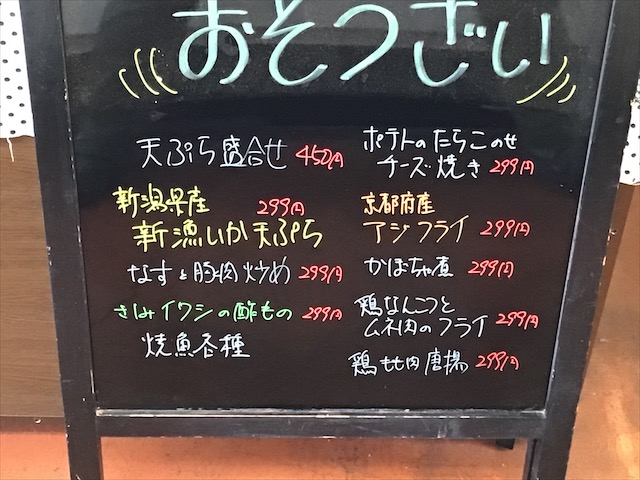 おそうざい
天ぷら盛合せ 450円
新潟県産 299円
新漁いか天ぷら
なすと豚肉炒め 299円
さみイワシの酢もの 299円
焼魚各種
ポテトのたらこのせ
チーズ焼き 299円
京都府産
アジフライ 299円
かぼちゃ煮 299円
鶏なんこつと
ムネ肉のフライ 299円
鶏もも肉唐揚 299円